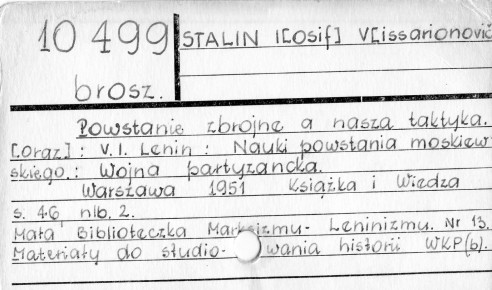 10 499
STALIN I[osif] V[issarionovič
brosz.
Powstanie zbrojne a nasza taktyka.
[oraz] : V. I. Lenin : Nauki powstania moskiew-
skiego. : Wojna partyzancka.
Warszawa 1951 Książka i Wiedza
s. 46, nlb. 2.
Mała Biblioteczka Marksizmu- Leninizmu. Nr 13.
Materiały do studio- wania historii WKP(b).